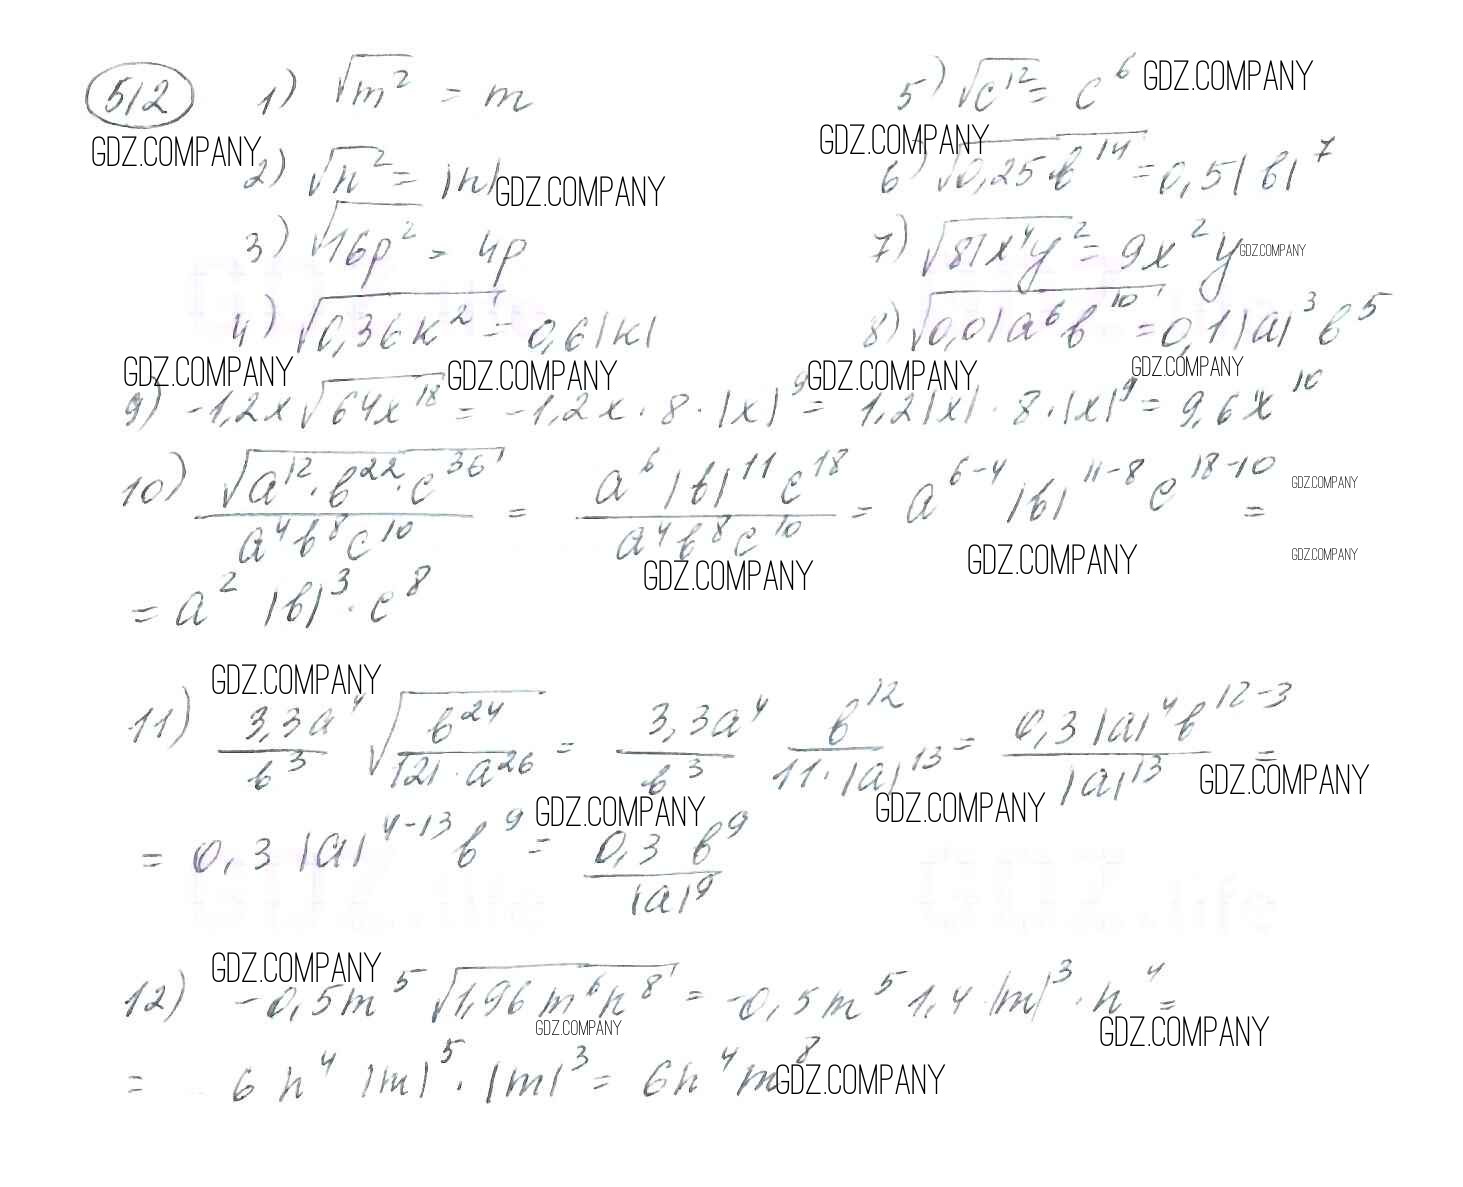 512 1) √m² = m 5) √c¹² = c⁶ GDZ.COMPANY
GDZ.COMPANY 2) √n² = |n| GDZ.COMPANY GDZ.COMPANY 6) √0,25 b¹⁴ = 0,5|b|⁷
3) √16p² = 4p 7) √81x⁴y² = 9x²y GDZ.COMPANY
4) √0,36k² = 0,6|k| 8) √0,01a⁶b¹⁰ = 0,1|a|³b⁵
GDZ.COMPANY GDZ.COMPANY GDZ.COMPANY GDZ.COMPANY
9) -1,2x √64x¹⁸ = -1,2x · 8 · |x|⁹ = 1,2|x| · 8 · |x|⁹ = 9,6x¹⁰
10) √a¹²·b²²·c³⁶ / a⁴b⁸c¹⁰ = a⁶|b|¹¹c¹⁸ / a⁴b⁸c¹⁰ = a⁶⁻⁴ |b|¹¹⁻⁸ c¹⁸⁻¹⁰ = GDZ.COMPANY
GDZ.COMPANY GDZ.COMPANY GDZ.COMPANY
= a² |b|³ · c⁸
GDZ.COMPANY
11) 3,3a⁴ / b³ √b²⁴ / 121·a²⁶ = 3,3a⁴ / b³ b¹² / 11·|a|¹³ = 0,3|a|⁴b¹²⁻³ / |a|¹³ =
GDZ.COMPANY GDZ.COMPANY GDZ.COMPANY
= 0,3 |a|⁴⁻¹³ b⁹ = 0,3 b⁹ / |a|⁹
GDZ.life GDZ.life
GDZ.COMPANY
12) -0,5m⁵ √1,96m⁶n⁸ = -0,5m⁵ 1,4 |m|³ · n⁴ =
GDZ.COMPANY GDZ.COMPANY
= 6n⁴ |m|⁵ · |m|³ = 6n⁴m⁸ GDZ.COMPANY